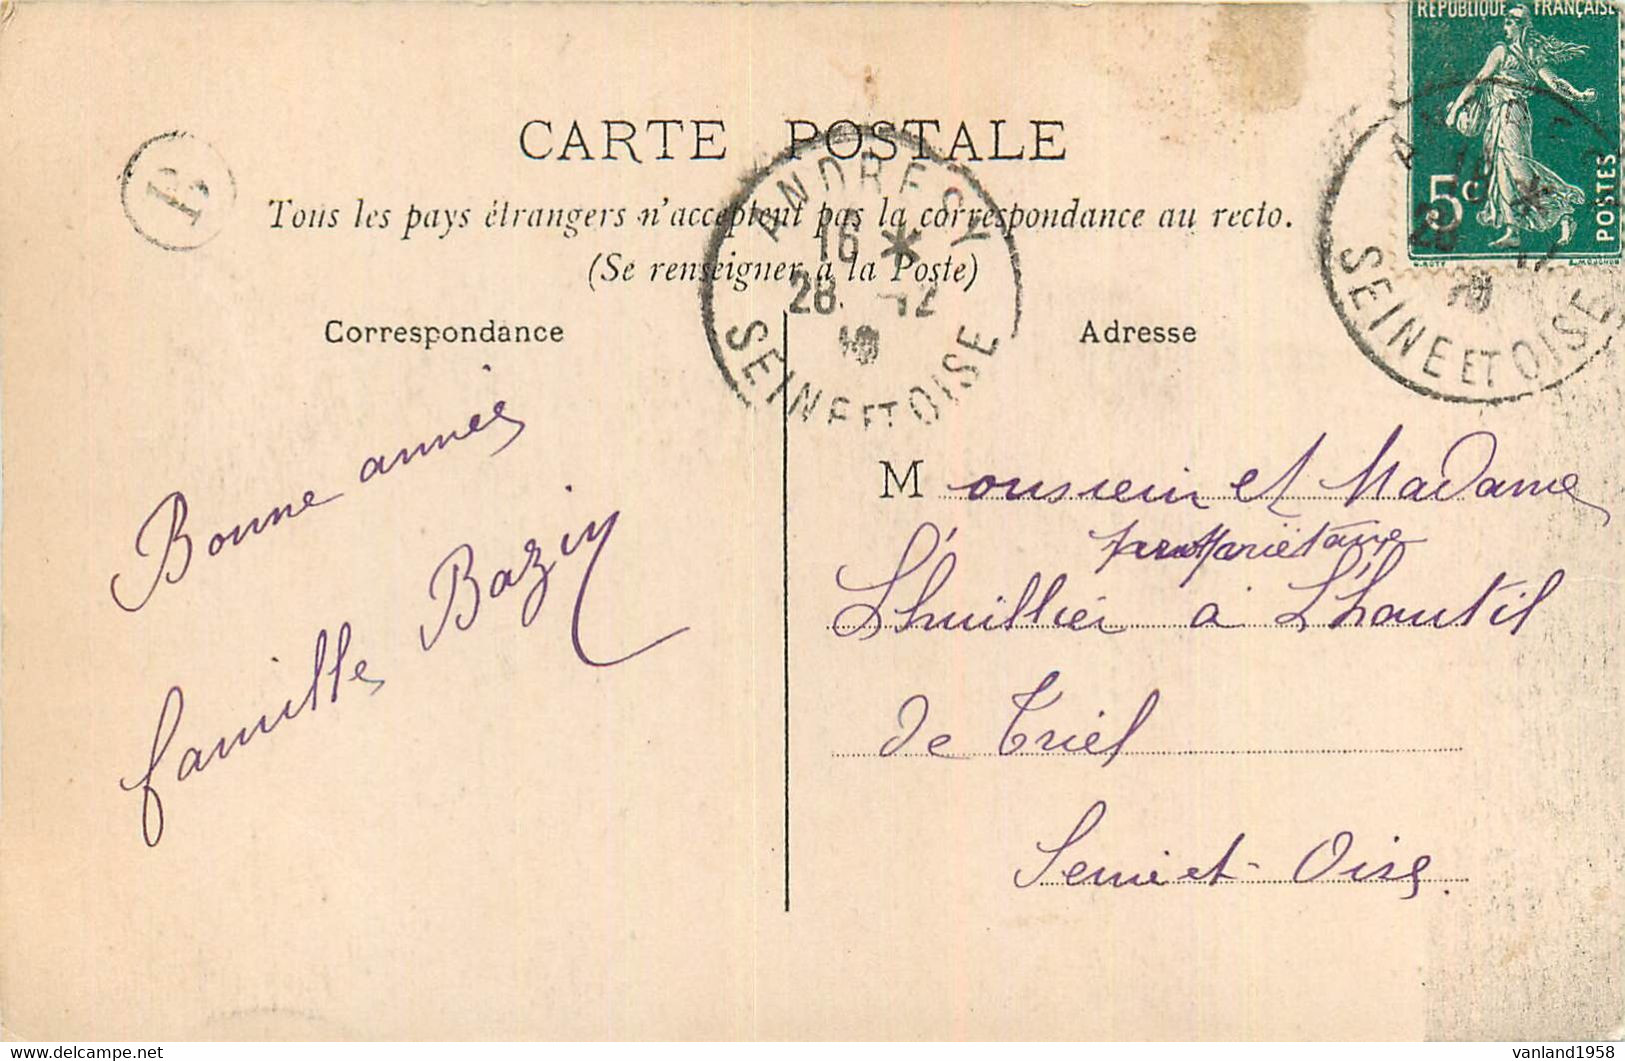 RÉPUBLIQUE FRANÇAISE
5c
POSTES
CARTE POSTALE
Tous les pays étrangers n'acceptent pas la correspondance au recto.
(Se renseigner à la Poste)
B
ANDRESY
16 *
28 -12
10
SEINE ET OISE
16 *
28 -12
10
SEINE ET OISE
Correspondance
Bonne année
famille Bazin
Adresse
Monsieur et Madame
propriétaire
Lhuillier à L'hautil
de Triel
Seine et Oise.
vanland1958